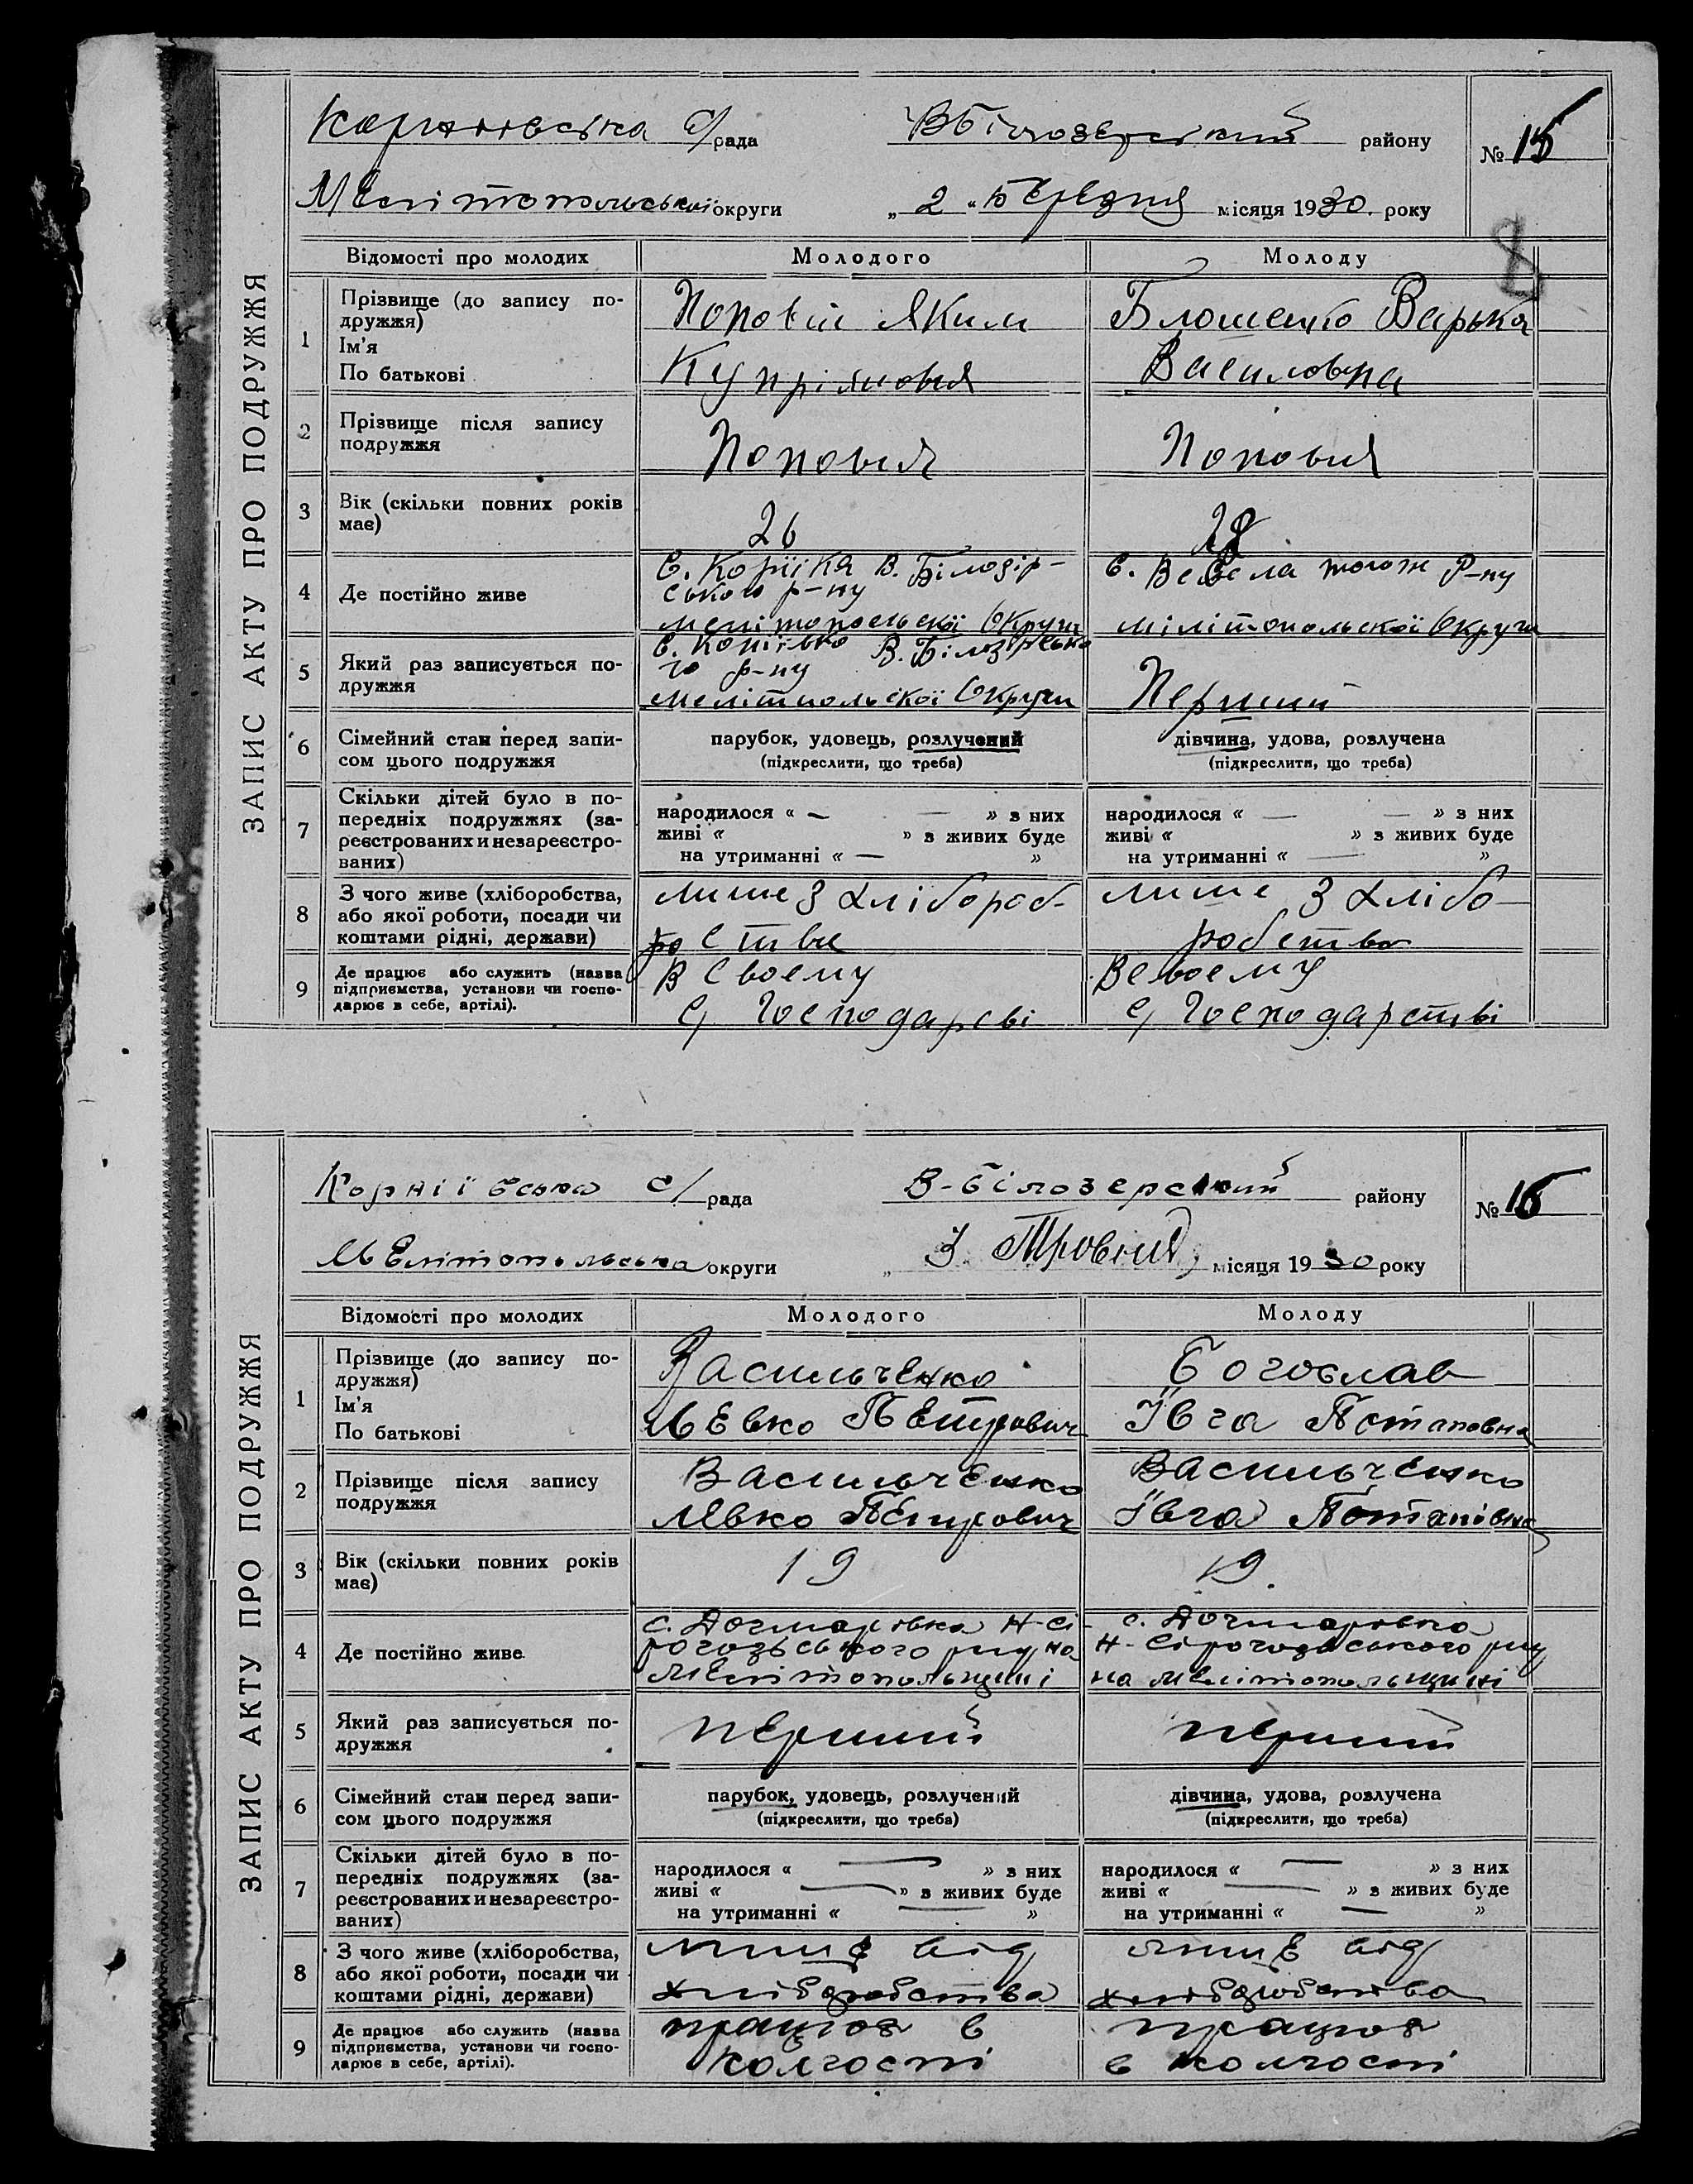 ЗАПИС АКТУ ПРО ПОДРУЖЖЯ
с/рада ВБілозерський району № 15
Мелітопольської округи „ 2 “ Березня місяця 1930. року
8
Відомості про молодих Молодого Молоду
1 Прізвище (до запису подружжя) Ім'я По батькові
Попович Яким
Блошенко Варька
Василовна
2 Прізвище після запису подружжя
Попович
Попович
3 Вік (скільки повних років має)
26
4 Де постійно живе
С. В. Білозір-
ського р-ну
Мелітопольскої Округи
С. Весела того ж Р-ну
Мілітопольскої Округи
5 Який раз записується подружжя
В. Білозірсько
го р-ну
Мелітпольскої Округи
Перший
6 Сімейний стан перед записом цього подружжя
парубок, удовець, розлучений
(підкреслити, що треба)
дівчина, удова, розлучена
(підкреслити, що треба)
7 Скільки дітей було в попередніх подружжях (зареєстрованих и незареєстрованих)
народилося « — — » з них
живі « » з живих буде
на утриманні « — »
народилося « — — » з них
живі « » з живих буде
на утриманні « — »
8 З чого живе (хліборобства, або якої роботи, посади чи коштами рідні, держави)
лише З хлібороб-
ства
лише З хлібо-
робства
9 Де працює або служить (назва підприємства, установи чи господарює в себе, артілі).
В Своему
С/ Господарсві
В своему
С/ Господарстві
ЗАПИС АКТУ ПРО ПОДРУЖЖЯ
Корніївська с/рада В-Білозерський району № 16
Мелітопольська округи „ 3. місяця 1930 року
Відомості про молодих Молодого Молоду
1 Прізвище (до запису подружжя) Ім'я По батькові
Васильченко
Левко Петрович
Богослав
Ївга Потаповна
2 Прізвище після запису подружжя
Васильченко
Левко Петрович
Васильченко
Ївга Потапівна
3 Вік (скільки повних років має)
19
19.
4 Де постійно живе
с. Догмарівка Н-Сі-
рогозьського рну на
Мелітопольщині
с. Догмарівка
Н-Сірогозьського рну
на Мелітопольщині
5 Який раз записується подружжя
перший
перший
6 Сімейний стан перед записом цього подружжя
парубок, удовець, розлучений
(підкреслити, що треба)
дівчина, удова, розлучена
(підкреслити, що треба)
7 Скільки дітей було в попередніх подружжях (зареєстрованих и незареєстрованих)
народилося « — » з них
живі « — » з живих буде
на утриманні « — »
народилося « — » з них
живі « — » з живих буде
на утриманні « — »
8 З чого живе (хліборобства, або якої роботи, посади чи коштами рідні, держави)
лише від
хліборобства
лише від
хліборобства
9 Де працює або служить (назва підприємства, установи чи господарює в себе, артілі).
працює в
колгоспі
працює
в колгоспі